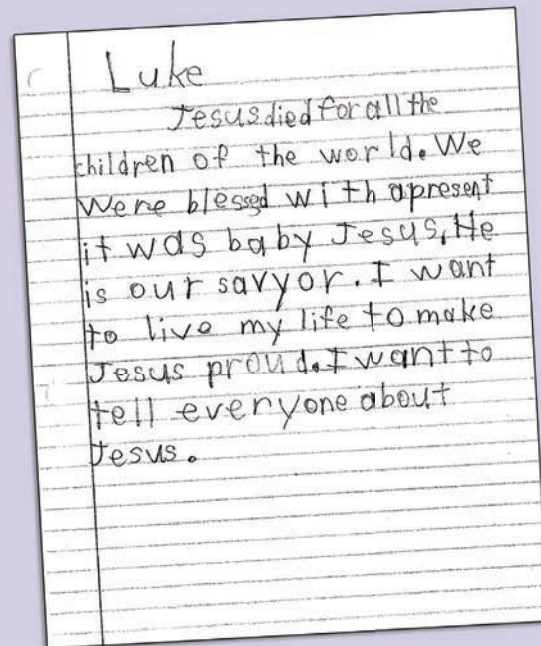 Luke
Jesus died for all the
children of the world. We
were blessed with a present
it was baby Jesus, He
is our savyor. I want
to live my life to make
Jesus proud. I want to
tell everyone about
Jesus.